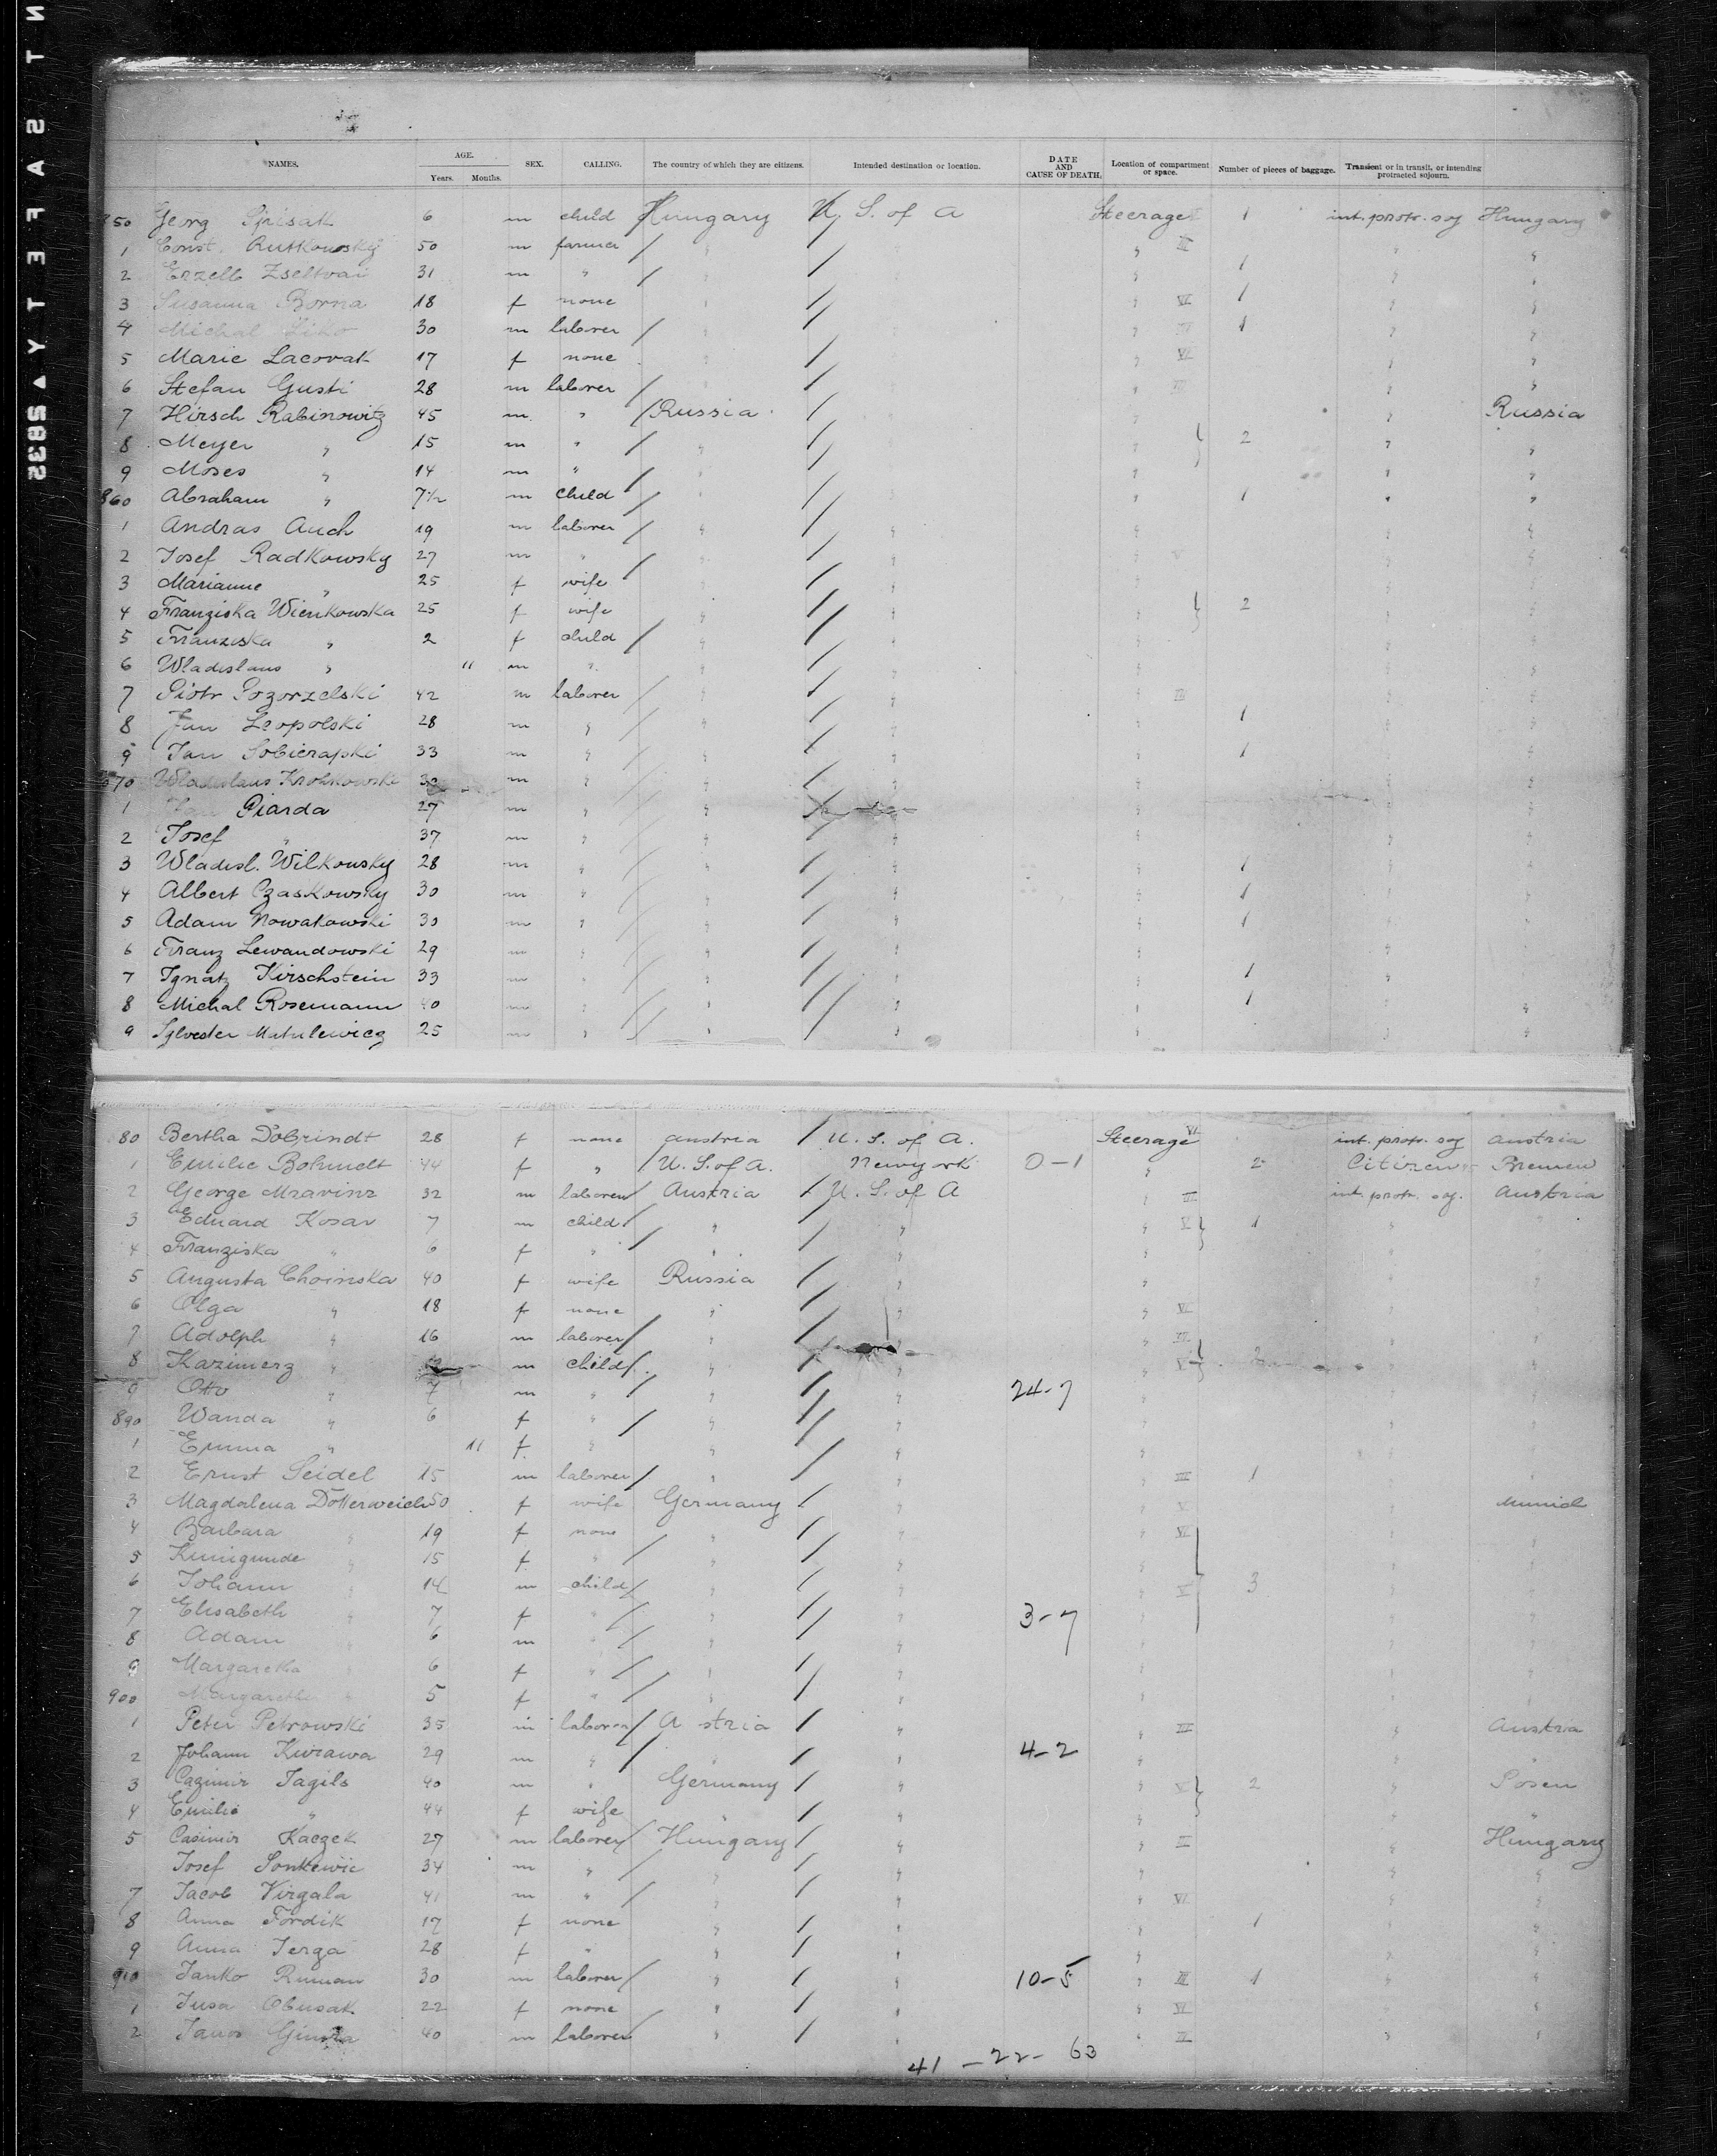 NAMES. AGE. Years. Months. SEX. CALLING. The country of which they are citizens. Intended destination or location. DATE AND CAUSE OF DEATH. Location of compartment or space. Number of pieces of baggage. Transient or in transit, or intending protracted sojourn.
850 Georg 6 m child Hungary U. S. of A Steerage 1 int. protr. soj Hungary
1 Const. Rutkowsky 50 m farmer " " III " "
2 Erzelb Zseltvai 31 m " " " 1 " "
3 Susanna Borna 18 f none " " VI 1 " "
4 Michal 30 m laborer " " 1 " "
5 Marie Lacovak 17 f none " " VI " "
6 Stefan Gusti 28 m laborer " " " "
7 Hirsch Rabinowitz 45 m " Russia " " Russia
8 Meyer " 15 m " " " 2 " "
9 Moses " 14 m " " " " "
860 Abraham " 7½ m child " " 1 " "
1 Andras Auch 19 m laborer " " " " "
2 Josef Radkowsky 27 m " " " " V " "
3 Marianne " 25 f wife " " " "
4 Franziska Wienkowska 25 f wife " " " 2 " "
5 Franziska " 2 f child " " " " "
6 Wladislaus " 11 m " " " " " "
7 Piotr Pogorzelski 42 m laborer " " " III " "
8 Jan Leopolski 28 m " " " " 1 " "
9 Jan Sobierajski 33 m " " " " 1 " "
870 Wladislaus Krohkowski 30 m " " " " " "
1 Piarda 27 m " " " " "
2 Josef " 37 m " " " " " "
3 Wladisl. Wilkowsky 28 m " " " " 1 " "
4 Albert Czaskowsky 30 m " " " " 1 " "
5 Adam Nowakowski 30 m " " " " 1 " "
6 Franz Lewandowski 29 m " " " " " "
7 Ignatz Kirschstein 33 m " " " " 1 " "
8 Michal Rosemann 40 m " " " " 1 " "
9 Sylvester Matulewicz 25 m " " " " " "
80 Bertha Dobrindt 28 f none Austria U. S. of A. Steerage VI int. protr. soj Austria
1 Emilie Bohmelt 44 f " U. S. of A. Newyork 0-1 " 2 Citizen Bremen
2 George Mravinz 32 m laborer Austria U. S. of A " III int. protr. soj. Austria
3 Eduard Kosar 7 m child " " " V 1 " "
4 Franziska " 6 f " " " " " "
5 Augusta Choinska 40 f wife Russia " " " "
6 Olga " 18 f none " " " VI " "
7 Adolph " 16 m laborer " " " III " "
8 Kazimerz " m child " " V 2 " "
9 Otto " 7 m " " " 24-7 " " "
890 Wanda " 6 f " " " " " "
1 Emma " 11 f " " " " " "
2 Ernst Seidel 15 m laborer " " " III 1 " "
3 Magdalena Dotterweich 50 f wife Germany " " V " Munich
4 Barbara " 19 f none " " " VI " "
5 Kunigunde " 15 f " " " " " "
6 Johann " 14 m child " " " V 3 " "
7 Elisabeth " 7 f " " " 3-7 " " "
8 Adam " 6 m " " " " " "
9 Margaretha " 6 f " " " " " "
900 Margarethe " 5 f " " " " " "
1 Peter Petrowski 35 m laborer A stria " " III " Austria
2 Johann Kurawa 29 m " " " 4-2 " " "
3 Cazimir Jagils 40 m " Germany " " V 2 " Posen
4 Emilie " 44 f wife " " " " "
5 Casimir Kaczek 27 m laborer Hungary " " III " Hungary
Josef Sonkewic 34 m " " " " " "
7 Jacob Virgala 41 m " " " " VI " "
8 Anna Fordik 17 f none " " " 1 " "
9 Anna Jerga 28 f " " " " " "
910 Janko Ruman 30 m laborer " " 10-5 " III 1 " "
1 Jusa Obusak 22 f none " " " VI " "
2 Janos 40 m laborer " " " III " "
41 - 22 - 63
SAFETY ▲ 5835